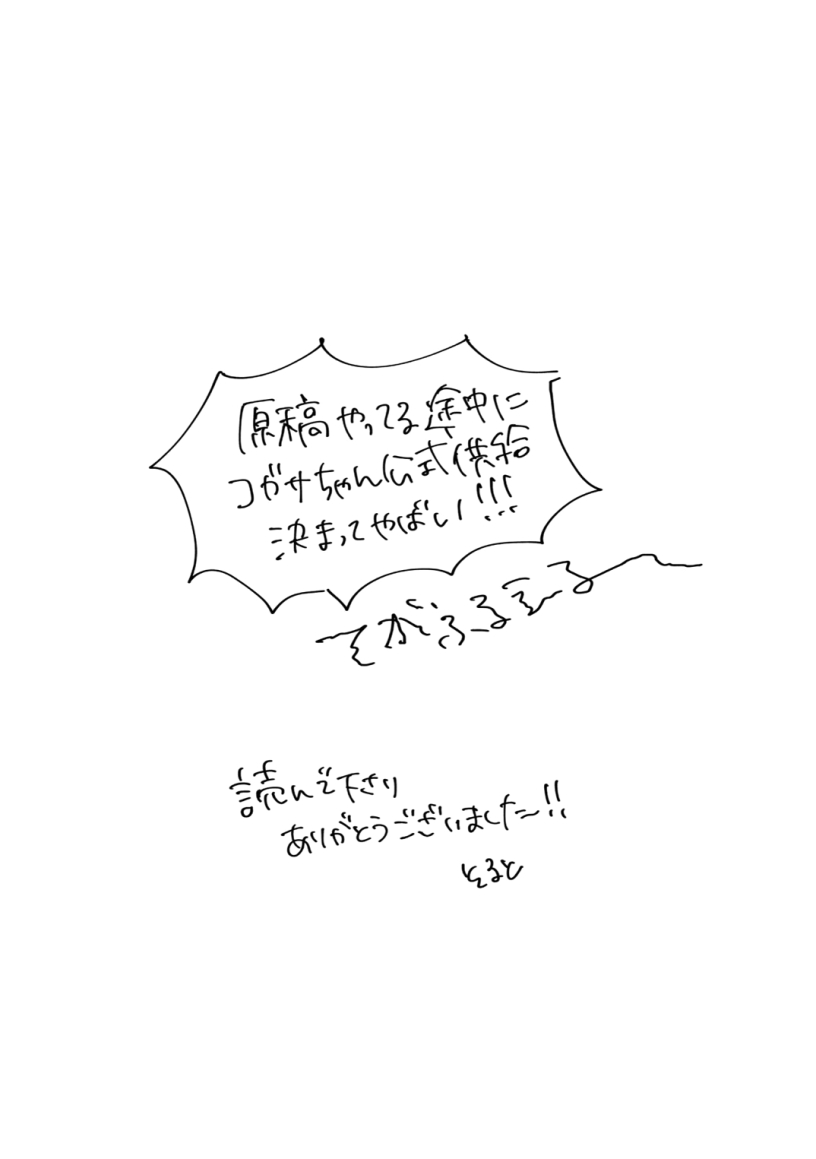 原稿やってる途中に
コガサちゃん公式供給
決まってやばい!!!
てがふるえる〜
読んで下さり
ありがとうございました〜!!
とると